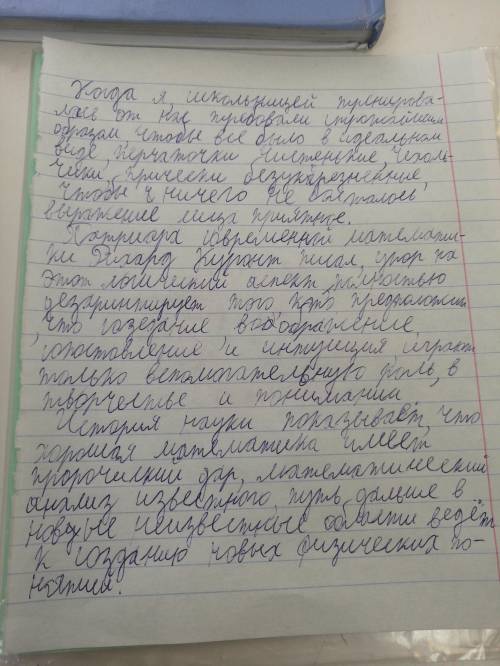 Когда я, школьницей тренирова-
лась от нас требовали
образом чтобы всё было в идеальном
виде, перчаточки чистенькие,
чики, прически безукорезненные,
чтобы ч ничего не болталось
выражение лица приятное.
Патриарх современный математи-
ки Рихард Курант писал, упор на
этот логический аспект полностью
дезаринтирует того, кто предположит
что создание воображение,
сопоставление и интуиция, играют
только вспомогательную роль, в
творчестве и понимании.
История науки показывает, что
хорошая математика имеет
пророческий дар, математический
анализ известного, путь дальше в
новые неизвестные области ведёт
к созданию новых физических по-
нятий.